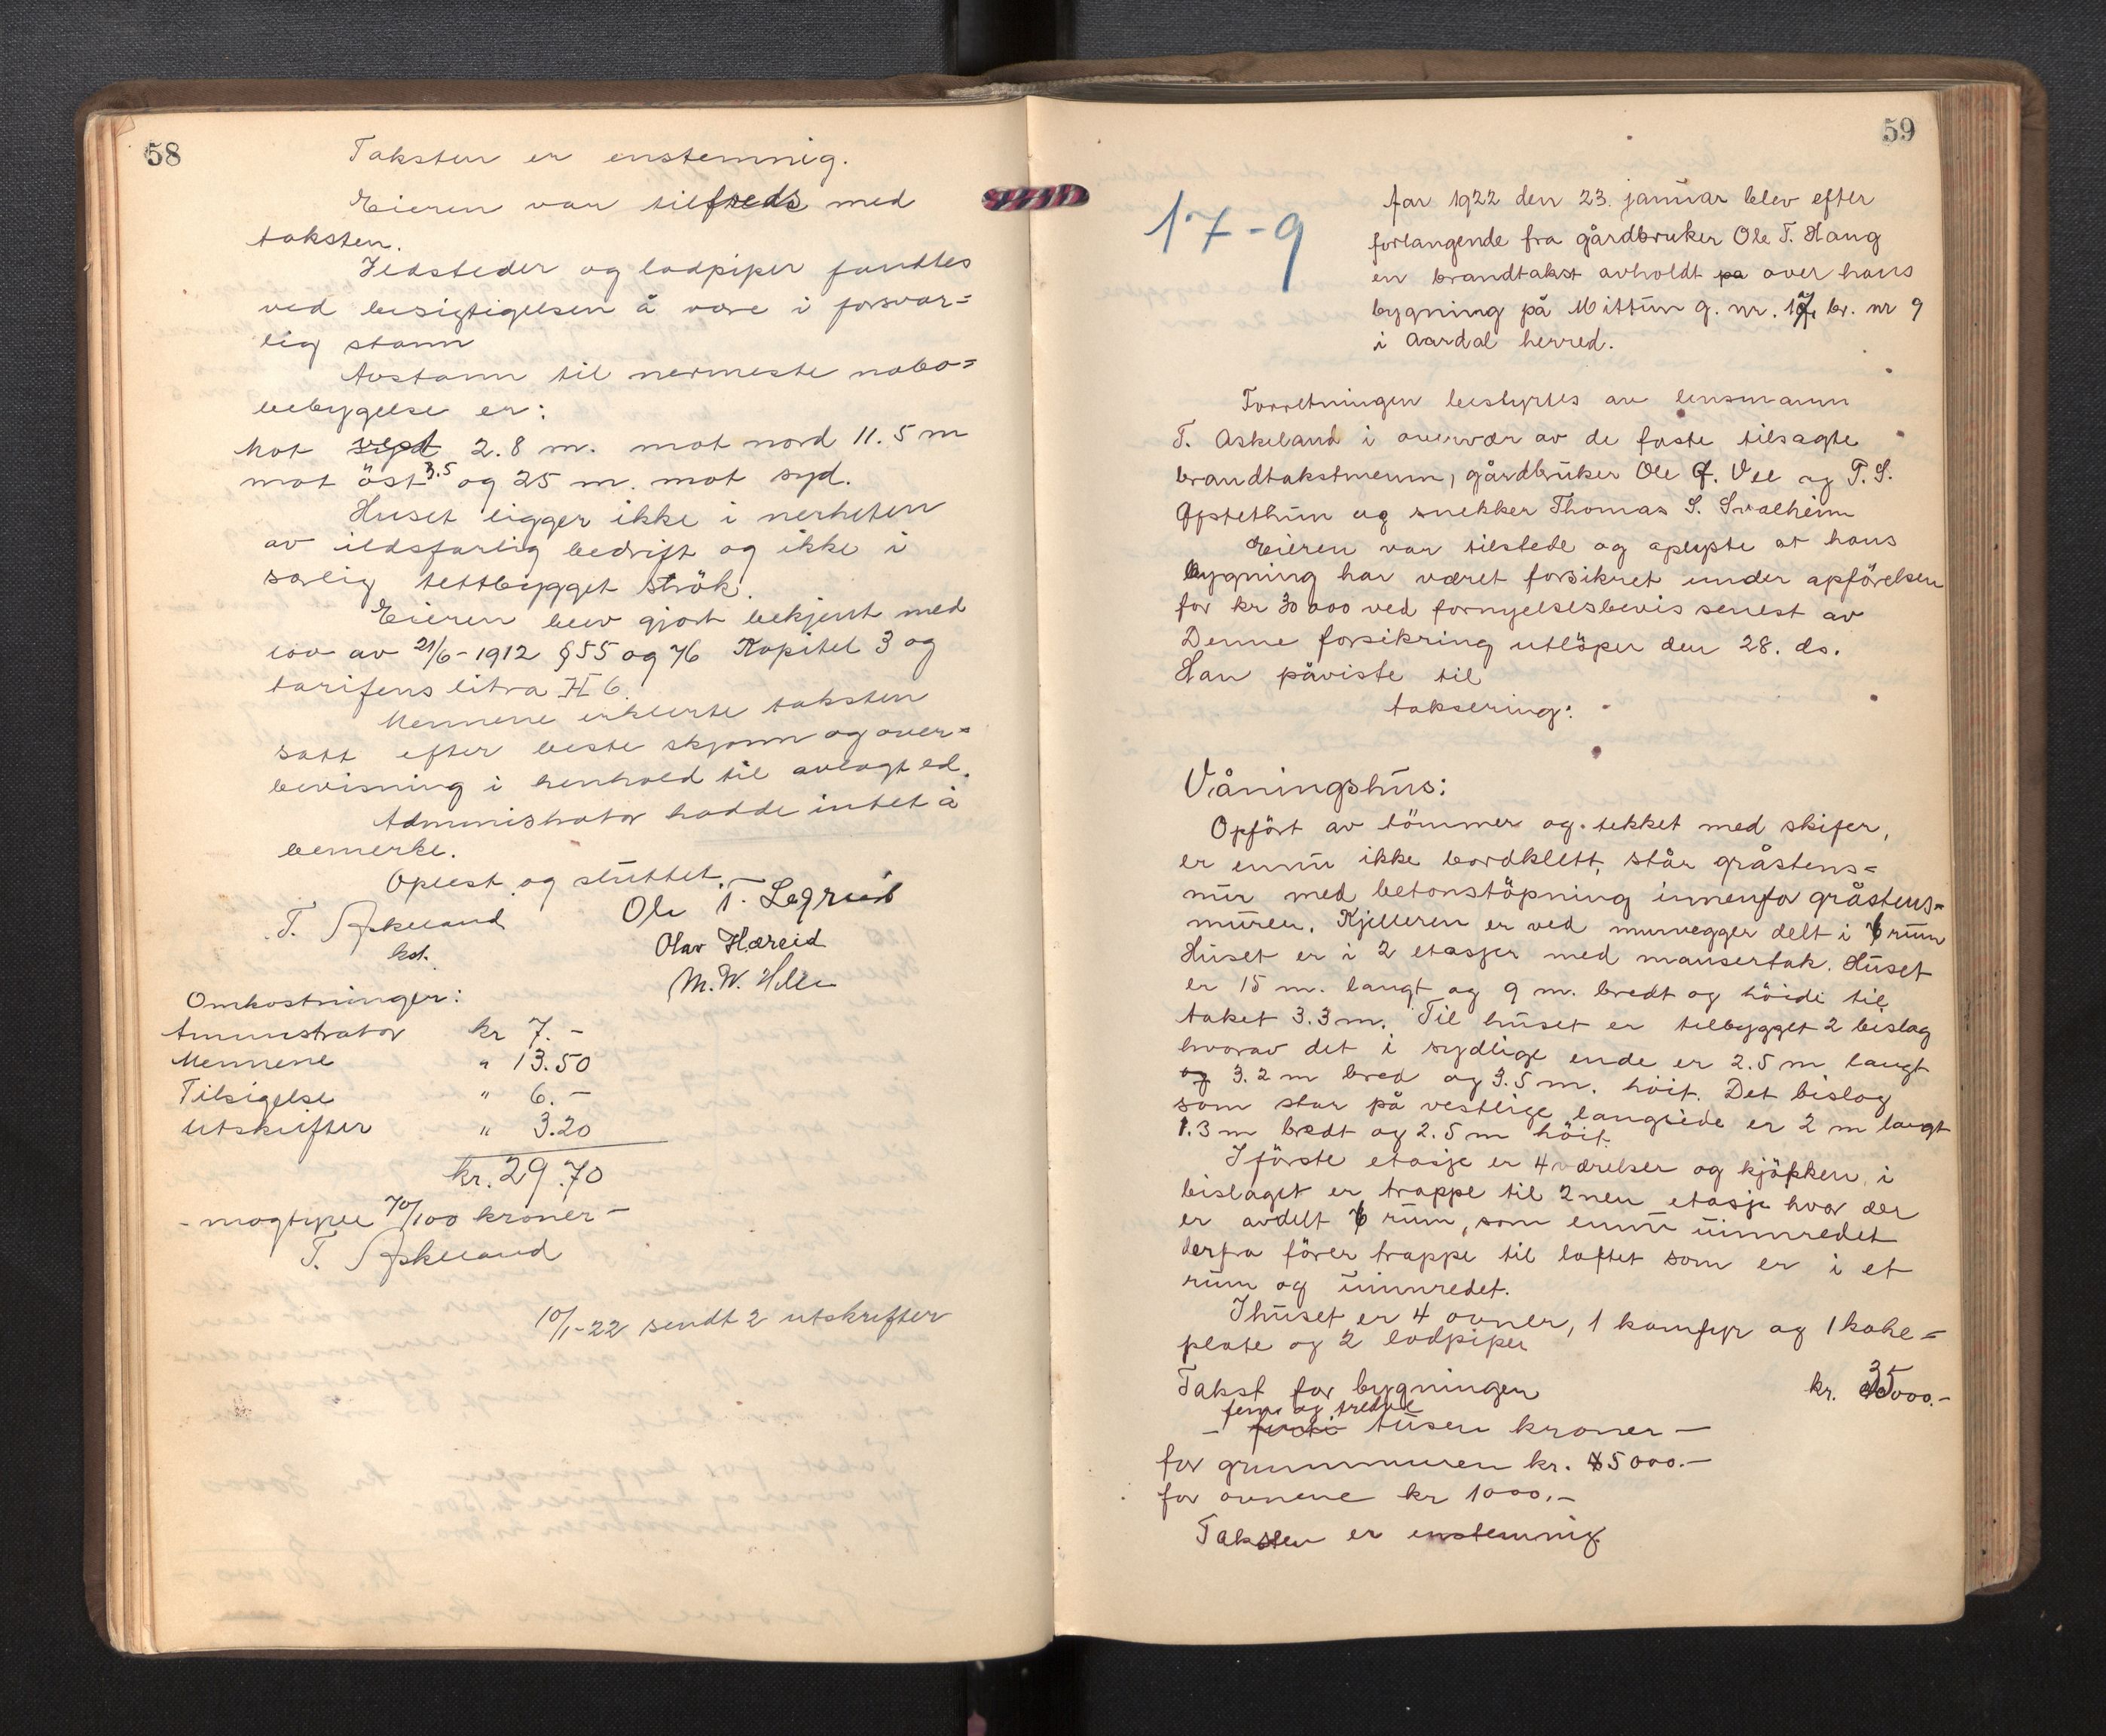 58
Taksten er enstemmig.
Eieren var tilfreds med
taksten.
Ildsteder og lodpiper fandtes
ved besigtigelsen å være i forsvar=
lig stann
Avstann til nermeste nabo=
bebygelse er:
mot 2.8 m. mot nord 11.5 m
mot öst 3.5 og 25 m. mot syd.
Huset ligger ikke i nerheten
av ildsfarlig bedrift og ikke i
særlig tettbygget strök.
Eieren blev gjort bekjent med
lov av 21/6-1912 § 55 og 76 Kapitel 3 og
tarifens litra H 6.
Mennene erklerte taksten
satt efter beste skjønn og over=
bevisning i henhold til avlagt ed.
Administrator hadde intet å
bemerke.
Oplest og sluttet.—
T. Askeland
Ole T. Legreid
kst.
Olav Hæreid
M. W. Hille
Omkostninger:
Aministrator kr 7.-
Mennene " 13.50
Tilsigelse " 6.-
Utskrifter " 3.20
kr. 29.70
- magtyve 70/100 kroner -
T. Askeland
10/1-22 sendt 2 utskrifter
59
17-9
Aar 1922 den 23. januar blev efter
forlangende fra gårdbruker Ole T. Haug
en brandtakst avholdt pa over hans
bygning på Mittun g. nr. 17, br. nr 9
i Aardal herred.
Forretningen bestyrtes av lensmann
T. Askeland i overvær av de faste tilsagte
brandtakstmenn, gårdbruker Ole J. Vee og T. S.
Opstethun og snekker Thomas S. Svalheim
Eieren var tilstede og oplyste at hans
bygning har været forsikret under opförelsen
for kr 30000 ved fornyelsesbevis senest av
Denne forsikring utlöper den 28. ds.
Han påviste til
taksering:
Våningshus:
Opfört av tömmer og tekket med skifer,
er ennu ikke bordklett, står gråstens=
mur med betonstöpning innenfor gråstens=
muren. Kjelleren er ved murvegger delt i 6 rum
Huset er i 2 etasjer med mansertak. Huset
er 15 m. langt og 9 m. bredt og höide til
taket 3.3 m. Til huset er tilbygget 2 bislag
hvorav det i sydlige ende er 2.5 m langt
og 3.2 m bred og 3.5 m. höit. Det bislag
som star på vestlige langside er 2 m langt
1.3 m bredt og 2.5 m höit.
I förste etasje er 4 værelser og kjökken, i
bislaget er trappe til 2nen etasje hvor der
er avdelt 6 rum, som ennu uinnredet
derfra förer trappe til loftet som er i et
rum og uinnredet.
I huset er 4 ovner, 1 komfyr og 1 koke=
plate og 2 lodpiper
Takst for bygningen kr. 35000.-
fem og tredve
- tusen kroner -
for grunnmuren kr. 5000.-
for ovnene kr 1000.-
Taksten er enstemmig